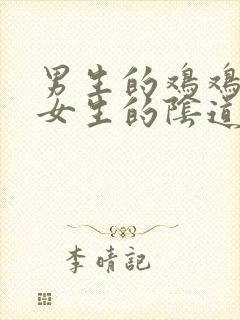 男生的鸡鸡
女生的陰道
李晴記